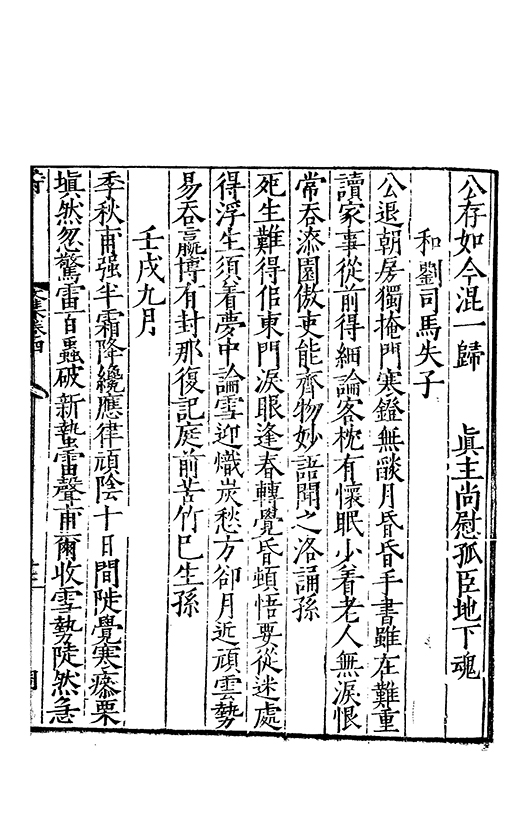 公存如今混一歸　眞主尚慰孤臣地下魂
和劉司馬失子
公退朝房獨掩門寒鐙無燄月昏昏手書雖在難重
讀家事從前得細論客枕有懷眠少着老人無淚恨
常吞漆園傲吏能齊物妙語聞之洛誦孫
死生難得佀東門淚眼逢春轉覺昏頓悟要從迷處
得浮生須着夢中論雪迎熾炭愁方卻月近頑雲勢
易吞羸博有封那復記庭前苦竹巳生孫
壬戌九月
季秋甫强半霜降纔應律頑陰十日間陡覺寒瘮栗
塡然忽驚雷百蟲破新蟄雷聲甫爾收雪勢陡然急
集卷四